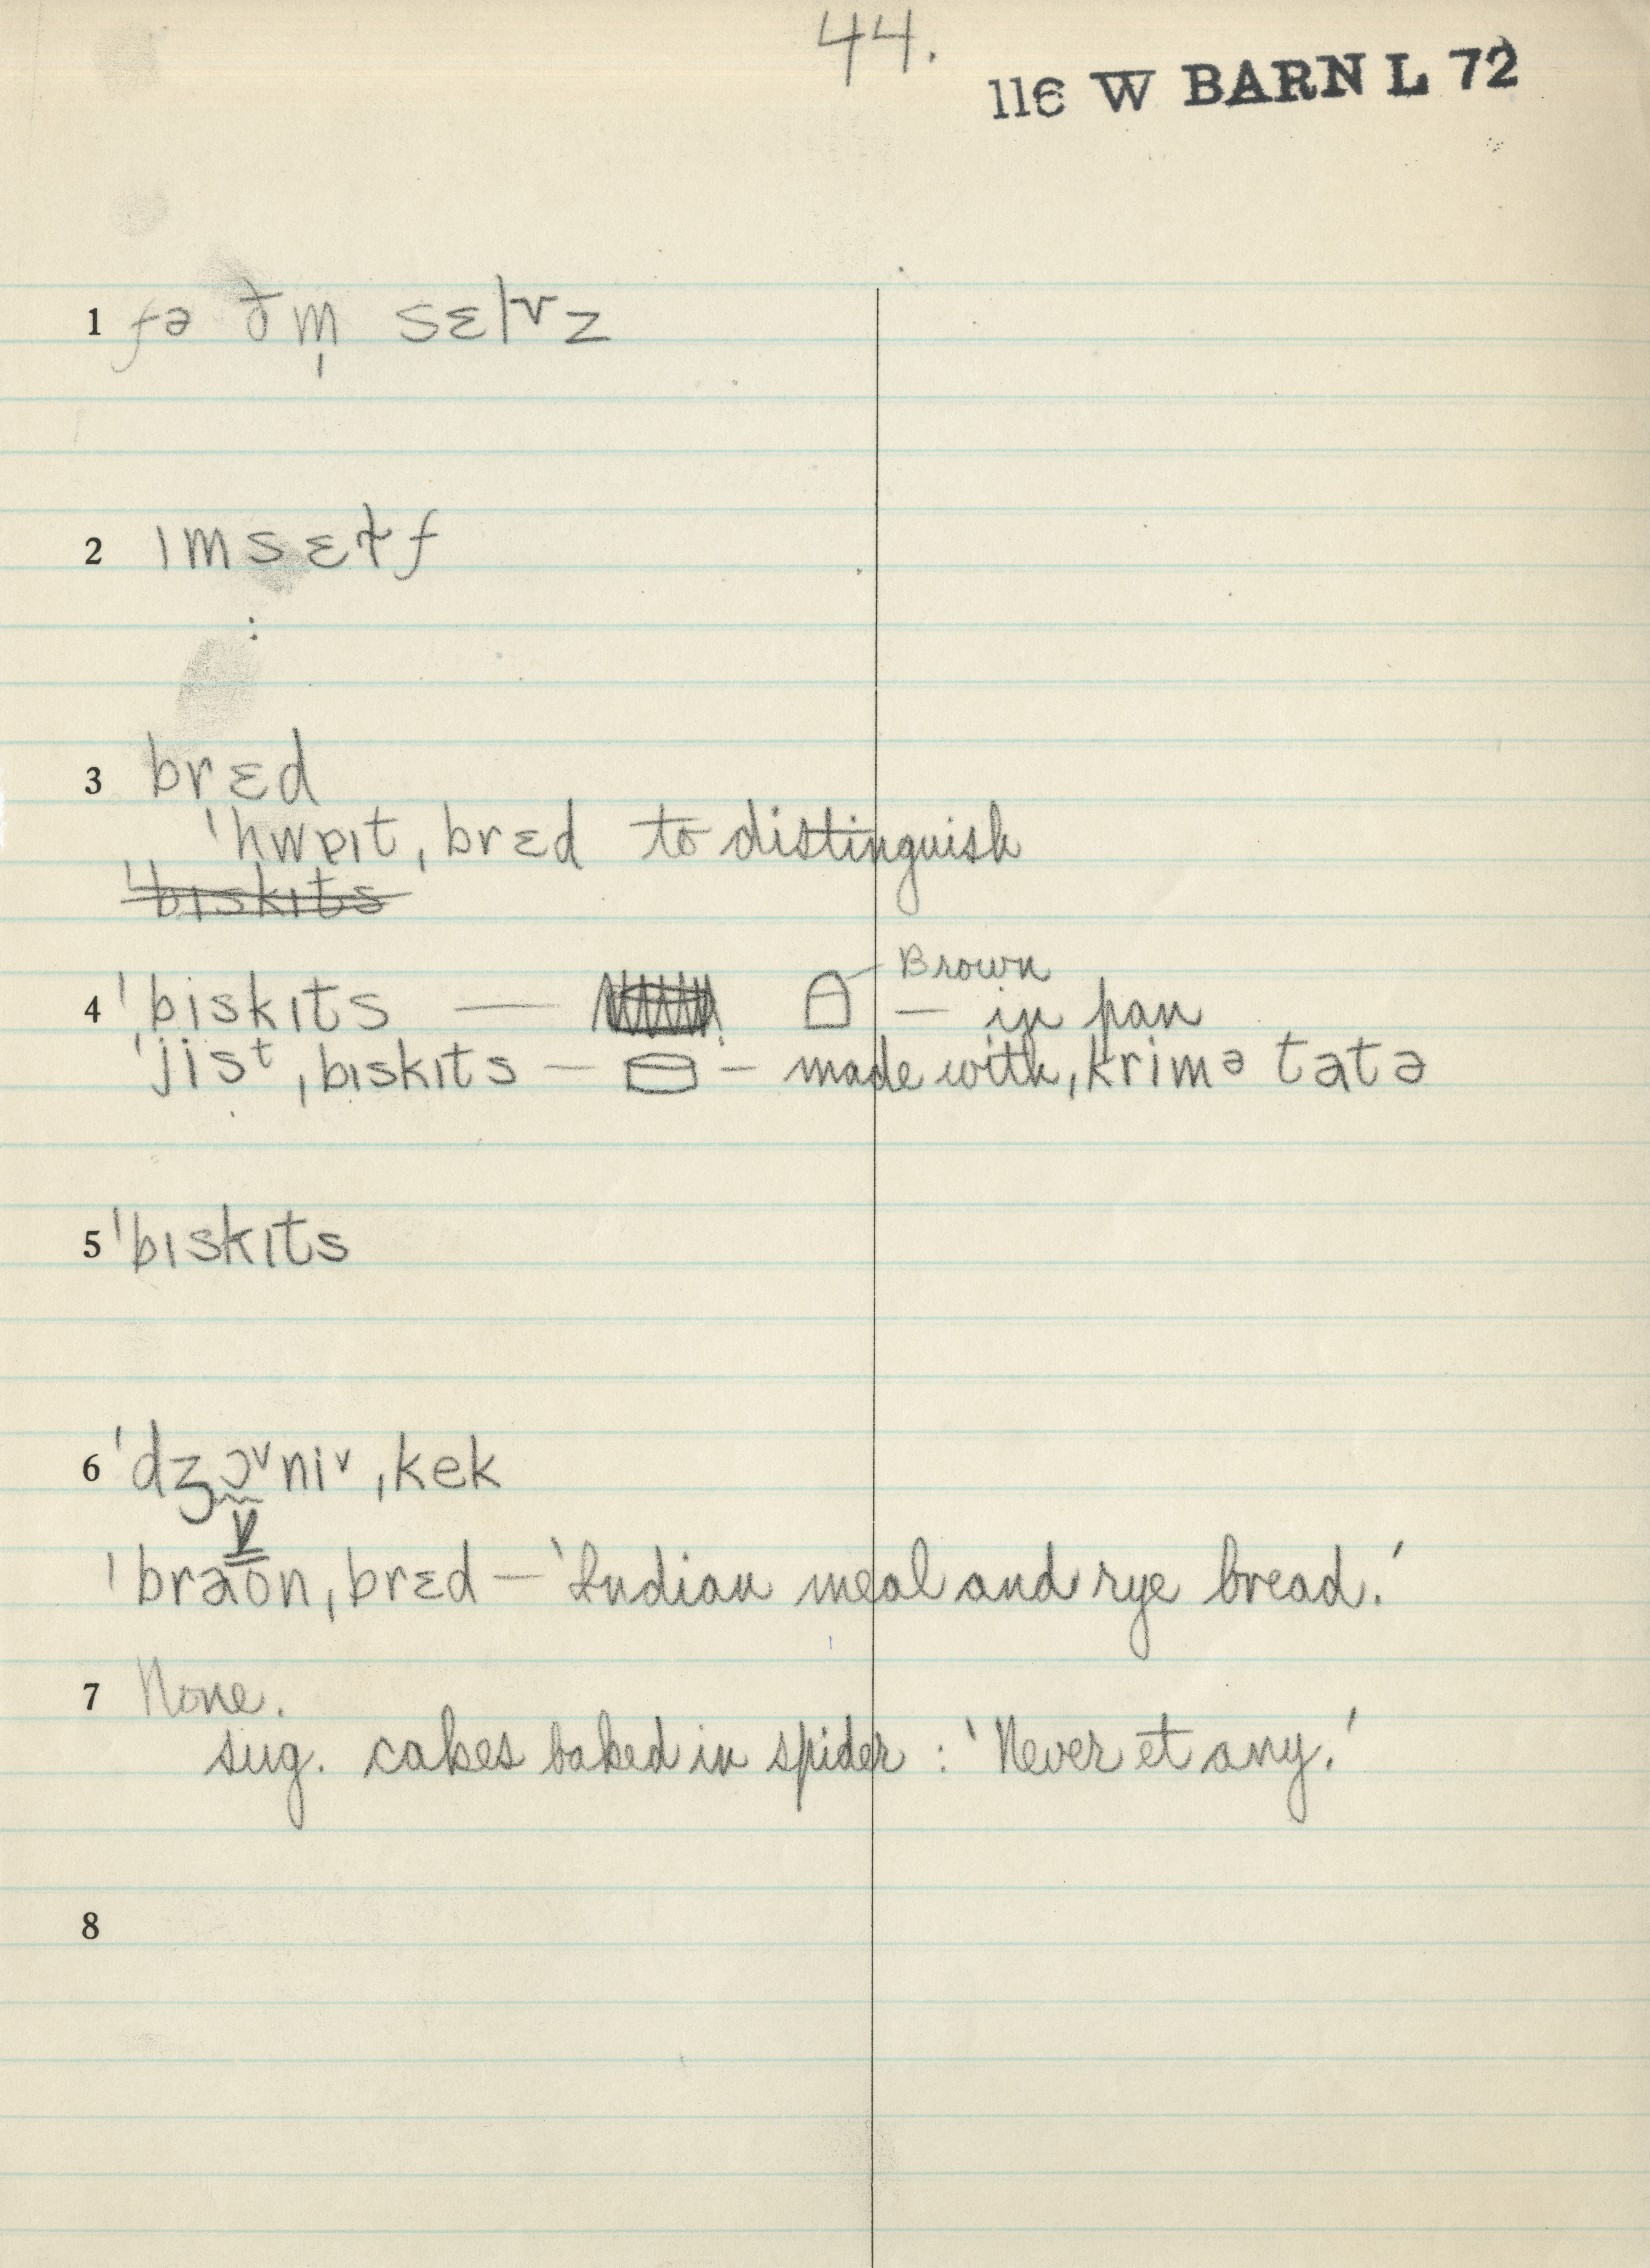 44.
116 W BARN L 72
1 fə ðm̩ sɛlvz
2 ɪmsɛɫf
:
3 brɛd
ˈhwɐɪt ˌbrɛd to distinguish
ˈbɪskɪts
Brown
4 ˈbiskɪts — — in pan
ˈjisᵗ ˌbɪskɪts — — made with ˌkrimə tatə
5 ˈbɪskɪts
6 ˈdʒɔᵛniᵛ ˌkek
ˈbraon ˌbrɛd — 'Indian meal and rye bread.'
7 None.
sug. cakes baked in spider : 'Never et any.'
8